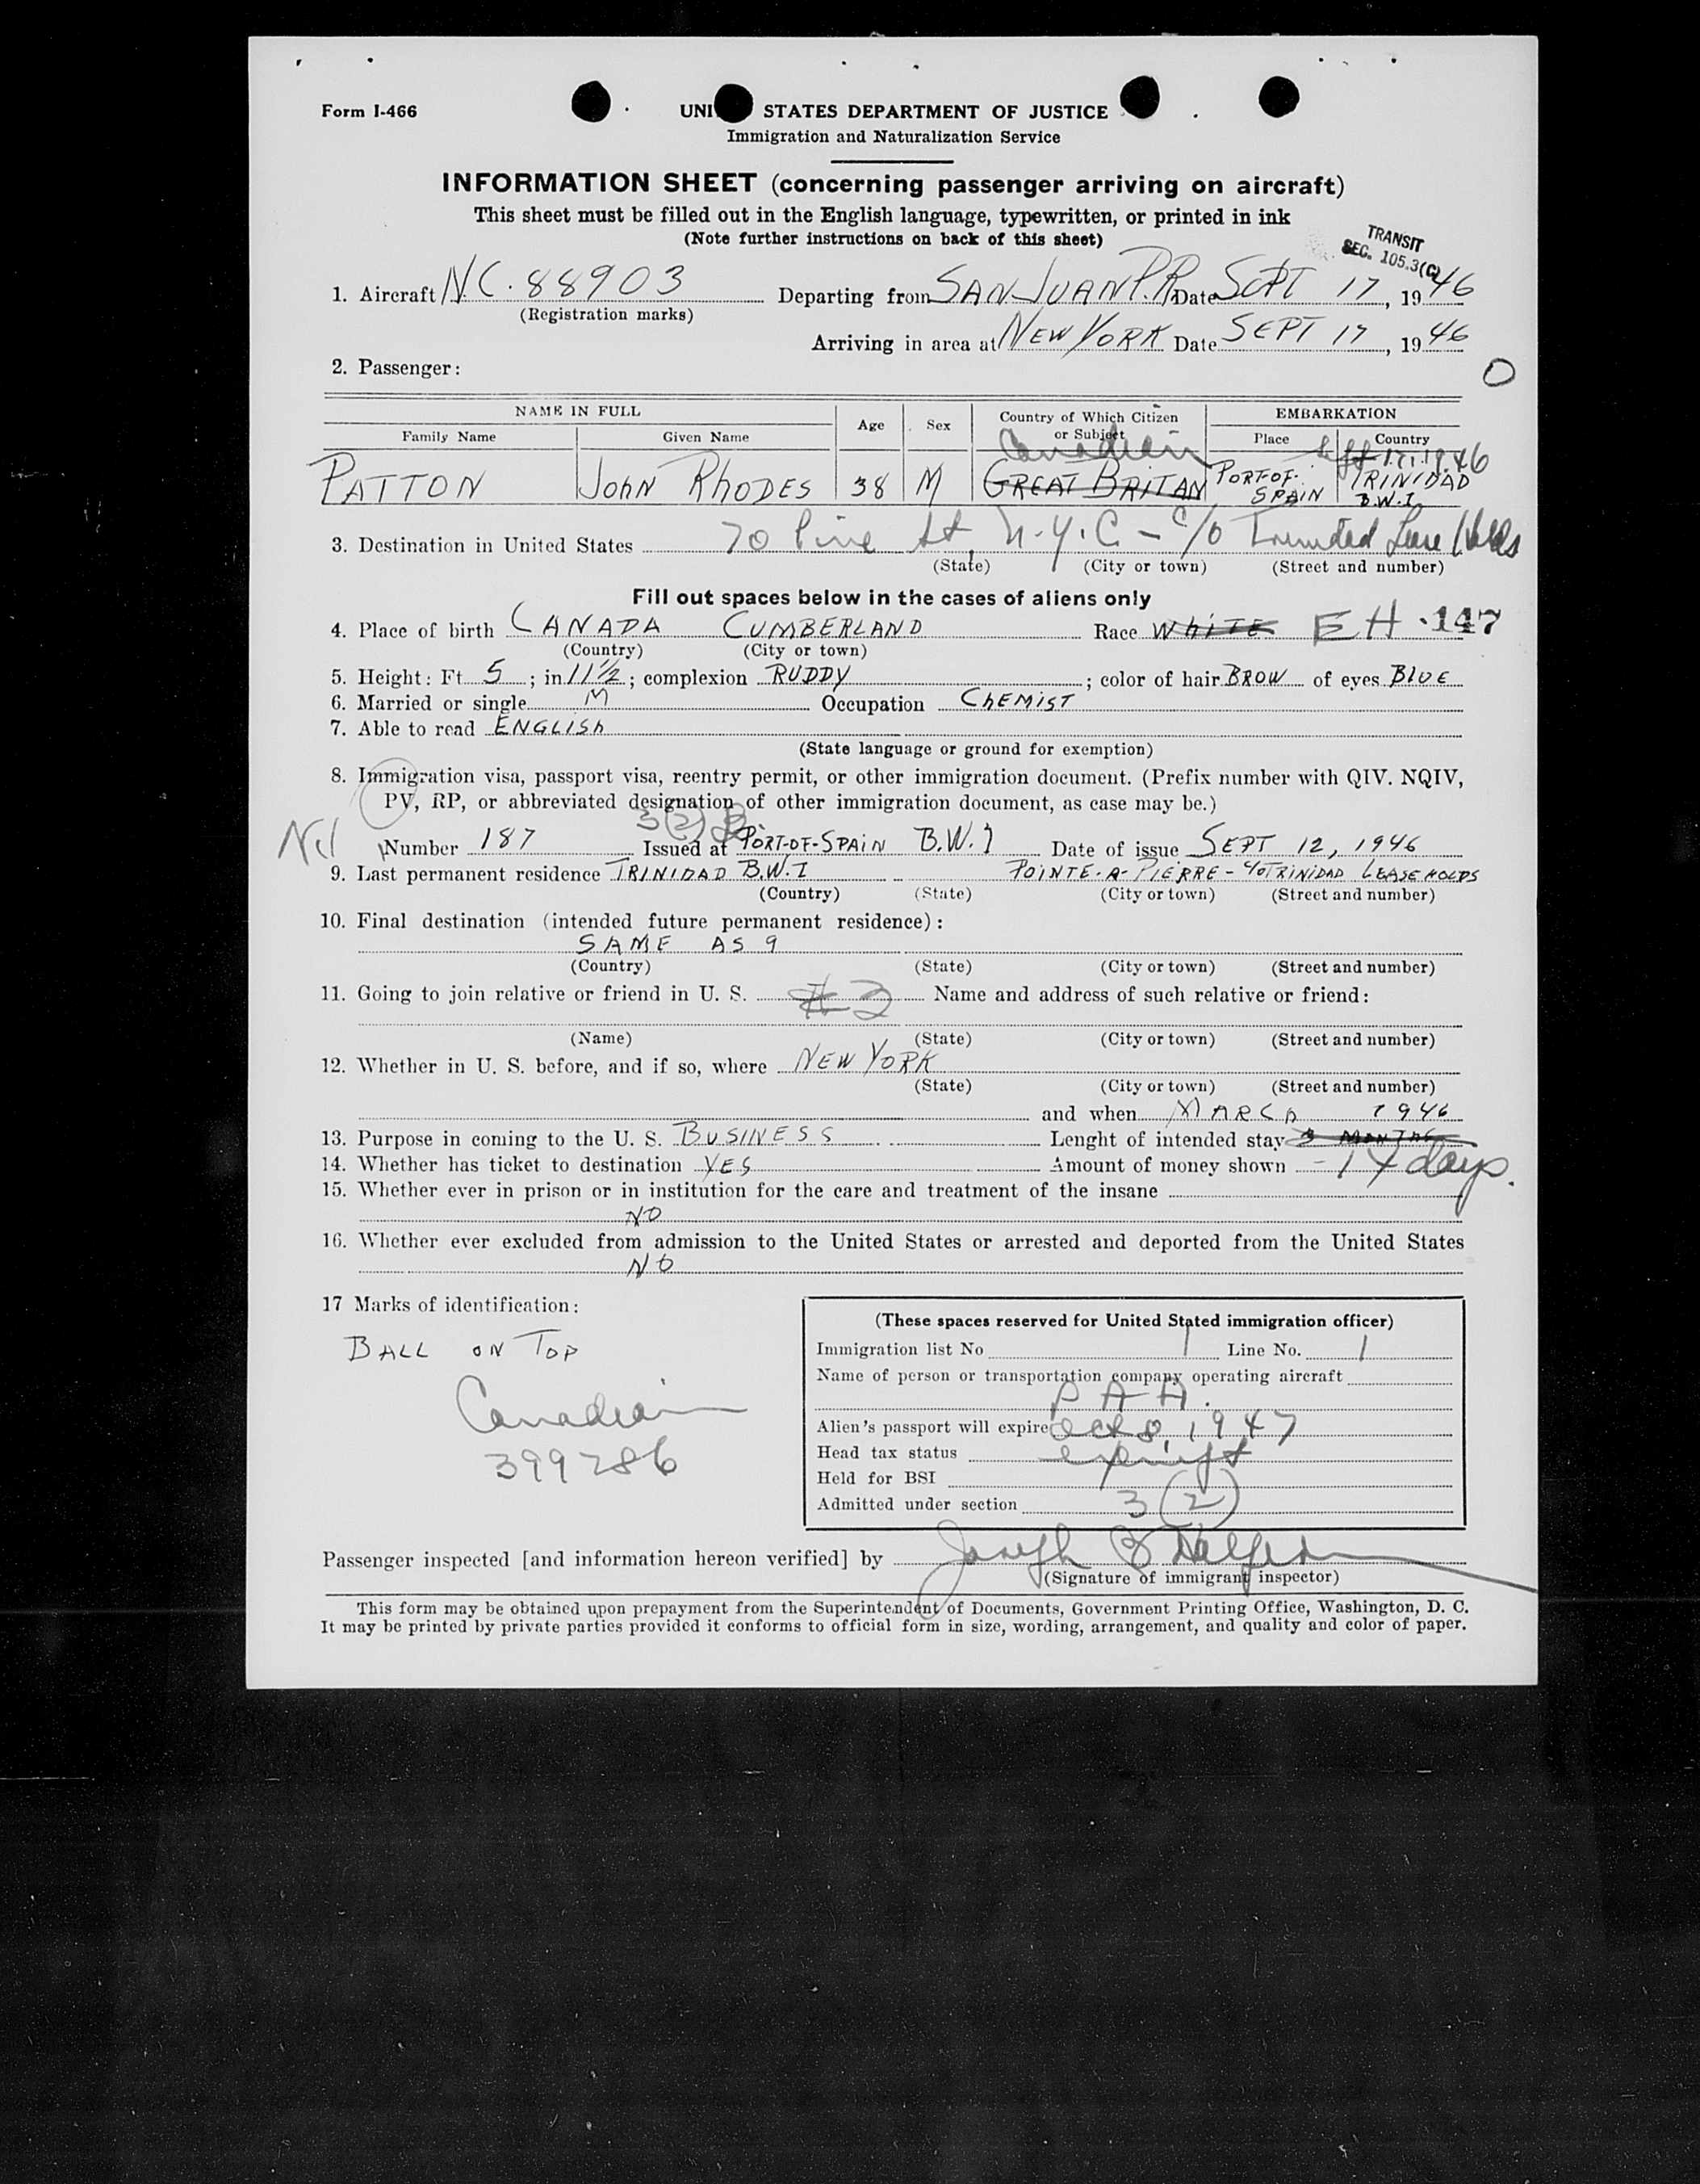 Form I-466
UNI STATES DEPARTMENT OF JUSTICE
Immigration and Naturalization Service
INFORMATION SHEET (concerning passenger arriving on aircraft)
This sheet must be filled out in the English language, typewritten, or printed in ink
(Note further instructions on back of this sheet)
TRANSIT
SEC. 105.3(C)
1. Aircraft NC. 88903 Departing from SAN JUAN P.R. Date SEPT 17, 1946
(Registration marks)
Arriving in area at NEW YORK Date SEPT 17, 1946
2. Passenger: O
NAME IN FULL Age Sex Country of Which Citizen or Subject EMBARKATION
Family Name Given Name Place Country
Canadian 17, 1946
PATTON JOHN RHODES 38 M GREAT BRITAN PORT-OF-SPAIN TRINIDAD B.W.I.
3. Destination in United States 70 Pine St, N.Y.C - c/o Lease Holds
(State) (City or town) (Street and number)
Fill out spaces below in the cases of aliens only
4. Place of birth CANADA CUMBERLAND Race WHITE EH 147
(Country) (City or town)
5. Height: Ft. 5; in 11 1/2; complexion RUDDY; color of hair BROW of eyes BLUE
6. Married or single M Occupation CHEMIST
7. Able to read ENGLISH
(State language or ground for exemption)
8. Immigration visa, passport visa, reentry permit, or other immigration document. (Prefix number with QIV. NQIV,
PV, RP, or abbreviated designation of other immigration document, as case may be.)
3(2)
Number 187 Issued at PORT-OF-SPAIN B.W.I Date of issue SEPT 12, 1946
9. Last permanent residence TRINIDAD B.W.I POINTE-A-PIERRE - c/o TRINIDAD LEASEHOLDS
(Country) (State) (City or town) (Street and number)
10. Final destination (intended future permanent residence):
SAME AS 9
(Country) (State) (City or town) (Street and number)
11. Going to join relative or friend in U. S. #2 Name and address of such relative or friend:
(Name) (State) (City or town) (Street and number)
12. Whether in U. S. before, and if so, where NEW YORK
(State) (City or town) (Street and number)
and when MARCH 1946
13. Purpose in coming to the U. S. BUSINESS Lenght of intended stay 3 MONTHS
14. Whether has ticket to destination YES Amount of money shown - 14 days.
15. Whether ever in prison or in institution for the care and treatment of the insane
NO
16. Whether ever excluded from admission to the United States or arrested and deported from the United States
NO
17 Marks of identification:
BALL ON TOP
Canadian
399286
(These spaces reserved for United Stated immigration officer)
Immigration list No 1 Line No. 1
Name of person or transportation company operating aircraft
P A A.
Alien's passport will expire Oct 8, 1947
Head tax status exempt
Held for BSI
Admitted under section 3(2)
Passenger inspected [and information hereon verified] by Joseph B
(Signature of immigrant inspector)
This form may be obtained upon prepayment from the Superintendent of Documents, Government Printing Office, Washington, D. C.
It may be printed by private parties provided it conforms to official form in size, wording, arrangement, and quality and color of paper.